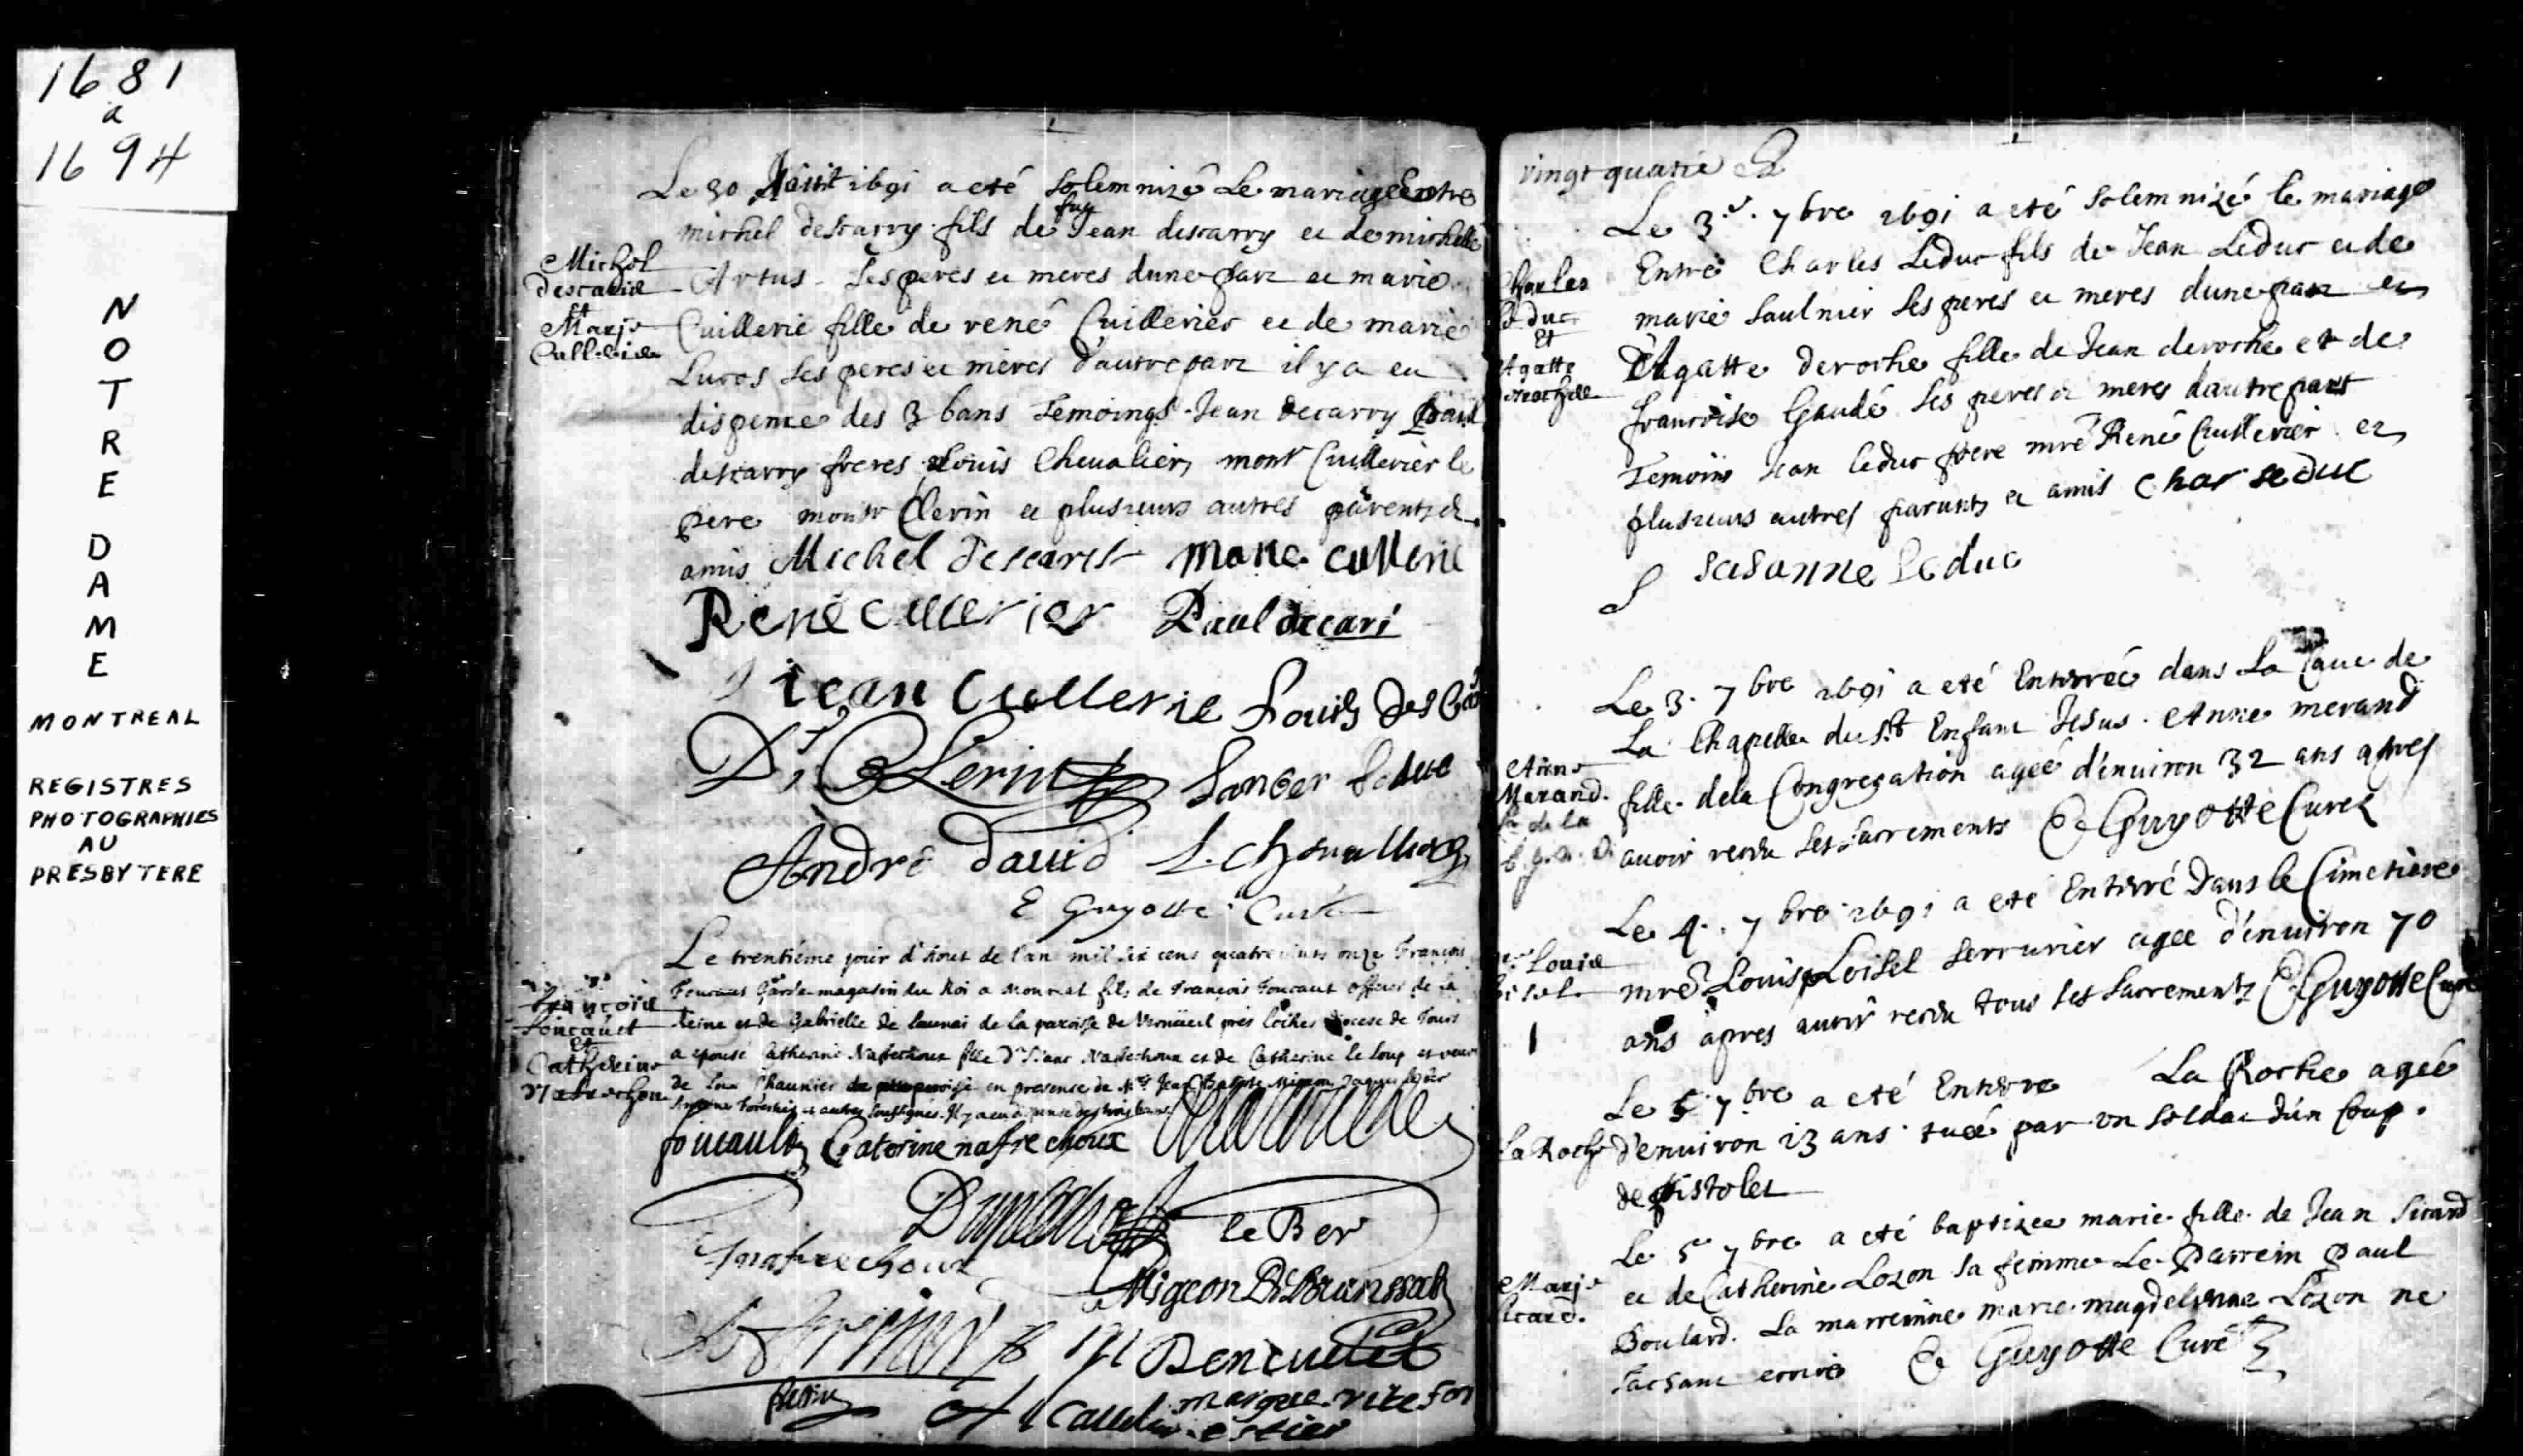 1681
a
1694
NOTRE
DAME
MONTREAL
REGISTRES
PHOTOGRAPHIES
AU
PRESBYTERE
Le 30 Aoust 1691 a eté solemnizé Le mariage Entre
michel descarry fils de feu Jean descarry et de michelle
Artus Ses peres et meres dune part et marie
Cuillerie fille de rené Cuillerier et de marie
Lucos Ses peres et meres d'autre part il y a eu
dispence des 3 bans Temoings Jean decarry Paul
descarry freres Louis Chevalier monsr Cuillerier le
pere monsr Clerin et plusieurs autres parents et
amis Michel descaris marie cullerie
René Cullerier Paul decari
Jean Cullerie Louis des
D. Clerin Lanber Leduc
André david L. Chevallier
E Guyotte Curé
Michel
descarie
et
Marie
Cullerie
Le trentiéme jour d'Aout de l'an mil six cens quatre vints onze François
Foucaut Garde magasin du Roi a Monreal fils de François Foucaut officier de la
Reine et de Gabrielle de launai de la paroisse de Verneüeil prés loches diocese de Tours
a epousé Catherine Nafrechoux fille d'Isaac Nafrechoux et de Catherine le Loup et veuve
de Chaunier en presence de Mrs Jean Baptiste Migeon Jaques leber
Forestier et autres soussignés. Il y a eu dispense des trois bans
foucault Caterine nafrechoux
le Ber
nafrechoux
Migeon De Branssat
Benevillet
margueritte for
estier
François
Foucault
et
Catherine
Nafrechou
vingt quatrie
Le 3.e 7bre 1691 a eté solemnizé le mariage
Entre Charles Leduc fils de Jean Leduc et de
marie Saulnier Ses peres et meres dune part et
Agatte deroche fille de Jean deroche et de
françoise Gaudé Ses peres et meres dautre part
Temoins Jean leduc frere mre René Cuillerier et
plusieurs autres parents et amis Char leduc
S Susanne Leduc
Charles
Leduc
Et
Agatte
Le 3. 7bre 1691 a eté Enterrée dans La Cave de
La Chapelle du St Enfant Jesus Anne merand
fille de la Congregation agée d'environ 32 ans apres
avoir receu Ses Sacrements E Guyotte Curé
Marand.
de la
Le 4. 7bre 1691 a eté Enterré Dans le Cimetiere
mre Louis Loisel Serrurier agée d'environ 70
ans apres avoir receu tous Ses Sacrements E Guyotte Curé
Louis
Le 5 7bre a eté Enterré La Roche agée
d'environ 23 ans tuée par un Soldat d'un Coup
de Pistolet
La Roche
Le 5e 7bre a eté baptizee marie fille de Jean Sicard
et de Catherine Lozon Sa femme Le Parrein Paul
Boulard. La marreinne marie magdeleine Lozon ne
sachant ecrire E Guyotte Curé
Marie
Sicard.